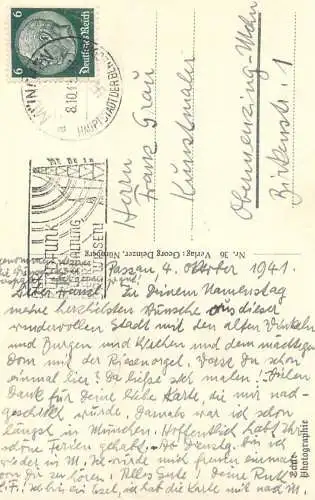 6 Deutsches Reich 6
8.10.4
HAUPTSTADT DER BEW
Herrn
Franz Grau
Kunstmaler
Obermenzing-Mchn
Birkenstr. 1
Nr. 36 Verlag Georg Deinzer, Nürnberg
Echte Photographie
RUNDFUNK
Passau, 4. Oktober 1941.
Lieber Hansel! Zu Deinem Namenstag
meine herzlichsten Wünsche aus dieser
wundervollen Stadt mit den alten Winkeln
und Burgen und Kirchen und dem mächtigen
Dom mit der Riesenorgel. Warst Du schon
einmal hier? Da ließe sich malen! Vielen
Dank für Deine liebe Karte, die mir nach-
geschickt wurde. Damals war ich schon
längst in München. Hoffentlich habt Ihr
schöne Ferien gehabt. Ab Dienstag bin ich
wieder in M. Ich würde mich freuen einmal
von Dir zu hören. Alles Gute! Deine Ruth
ich bin ein Esel, ich hab die Karte mit nach M.
genommen